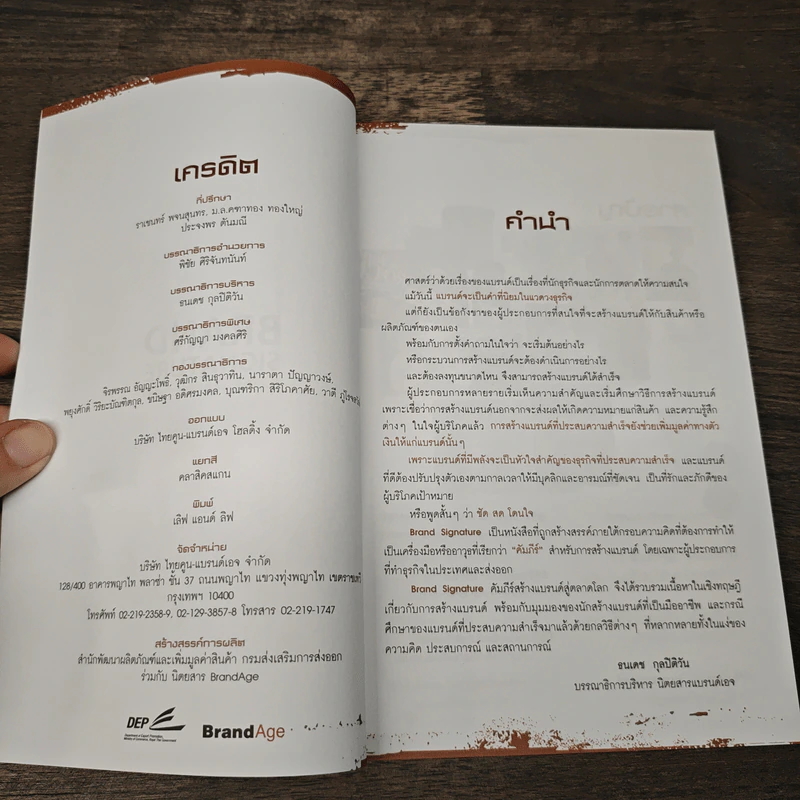 เครดิต
ที่ปรึกษา
ราเชนทร์ พจนสุนทร, ม.ล.คฑาทอง ทองใหญ่
ประจงพร ตันมณี
บรรณาธิการอำนวยการ
พิชัย ศิริจันทนันท์
บรรณาธิการบริหาร
ธนเดช กุลปิติวัน
บรรณาธิการพิเศษ
ศรีกัญญา มงคลศิริ
กองบรรณาธิการ
จิรพรรณ อัญญะโพธิ์, วุฒิกร สินธุวาทิน, นาราตา ปัญญาวงษ์,
พยุงศักดิ์ วิริยะบัณฑิตกุล, ชนิษฐา อดิศรมงคล, บุณฑริกา สิริโภคาศัย, วาดี
ออกแบบ
บริษัท ไทยคูน-แบรนด์เอจ โฮลดิ้ง จำกัด
แยกสี
คลาสิคสแกน
พิมพ์
เลิฟ แอนด์ ลิฟ
จัดจำหน่าย
บริษัท ไทยคูน-แบรนด์เอจ จำกัด
128/400 อาคารพญาไท พลาซ่า ชั้น 37 ถนนพญาไท แขวงทุ่งพญาไท เขตราชเทวี
กรุงเทพฯ 10400
โทรศัพท์ 02-219-2358-9, 02-129-3857-8 โทรสาร 02-219-1747
สร้างสรรค์การผลิต
สำนักพัฒนาผลิตภัณฑ์และเพิ่มมูลค่าสินค้า กรมส่งเสริมการส่งออก
ร่วมกับ นิตยสาร BrandAge
DEP
Department of Export Promotion,
Ministry of Commerce, Royal Thai Government
BrandAge
คำนำ
ศาสตร์ว่าด้วยเรื่องของแบรนด์เป็นเรื่องที่นักธุรกิจและนักการตลาดให้ความสนใจ
แม้วันนี้ แบรนด์จะเป็นคำที่นิยมในแวดวงธุรกิจ
แต่ก็ยังเป็นข้อกังขาของผู้ประกอบการที่สนใจที่จะสร้างแบรนด์ให้กับสินค้าหรือ
ผลิตภัณฑ์ของตนเอง
พร้อมกับการตั้งคำถามในใจว่า จะเริ่มต้นอย่างไร
หรือกระบวนการสร้างแบรนด์จะต้องดำเนินการอย่างไร
และต้องลงทุนขนาดไหน จึงสามารถสร้างแบรนด์ได้สำเร็จ
ผู้ประกอบการหลายรายเริ่มเห็นความสำคัญและเริ่มศึกษาวิธีการสร้างแบรนด์
เพราะเชื่อว่าการสร้างแบรนด์นอกจากจะส่งผลให้เกิดความหมายแก่สินค้า และความรู้สึก
ต่างๆ ในใจผู้บริโภคแล้ว การสร้างแบรนด์ที่ประสบความสำเร็จยังช่วยเพิ่มมูลค่าทางตัว
เงินให้แก่แบรนด์นั้นๆ
เพราะแบรนด์ที่มีพลังจะเป็นหัวใจสำคัญของธุรกิจที่ประสบความสำเร็จ และแบรนด์
ที่ดีต้องปรับปรุงตัวเองตามกาลเวลาให้มีบุคลิกและอารมณ์ที่ชัดเจน เป็นที่รักและภักดีของ
ผู้บริโภคเป้าหมาย
หรือพูดสั้นๆ ว่า ชัด สด โดนใจ
Brand Signature เป็นหนังสือที่ถูกสร้างสรรค์ภายใต้กรอบความคิดที่ต้องการทำให้
เป็นเครื่องมือหรืออาวุธที่เรียกว่า "คัมภีร์" สำหรับการสร้างแบรนด์ โดยเฉพาะผู้ประกอบการ
ที่ทำธุรกิจในประเทศและส่งออก
Brand Signature คัมภีร์สร้างแบรนด์สู่ตลาดโลก จึงได้รวบรวมเนื้อหาในเชิงทฤษฎี
เกี่ยวกับการสร้างแบรนด์ พร้อมกับมุมมองของนักสร้างแบรนด์ที่เป็นมืออาชีพ และกรณี
ศึกษาของแบรนด์ที่ประสบความสำเร็จมาแล้วด้วยกลวิธีต่างๆ ที่หลากหลายทั้งในแง่ของ
ความคิด ประสบการณ์ และสถานการณ์
ธนเดช กุลปิติวัน
บรรณาธิการบริหาร นิตยสารแบรนด์เอจ